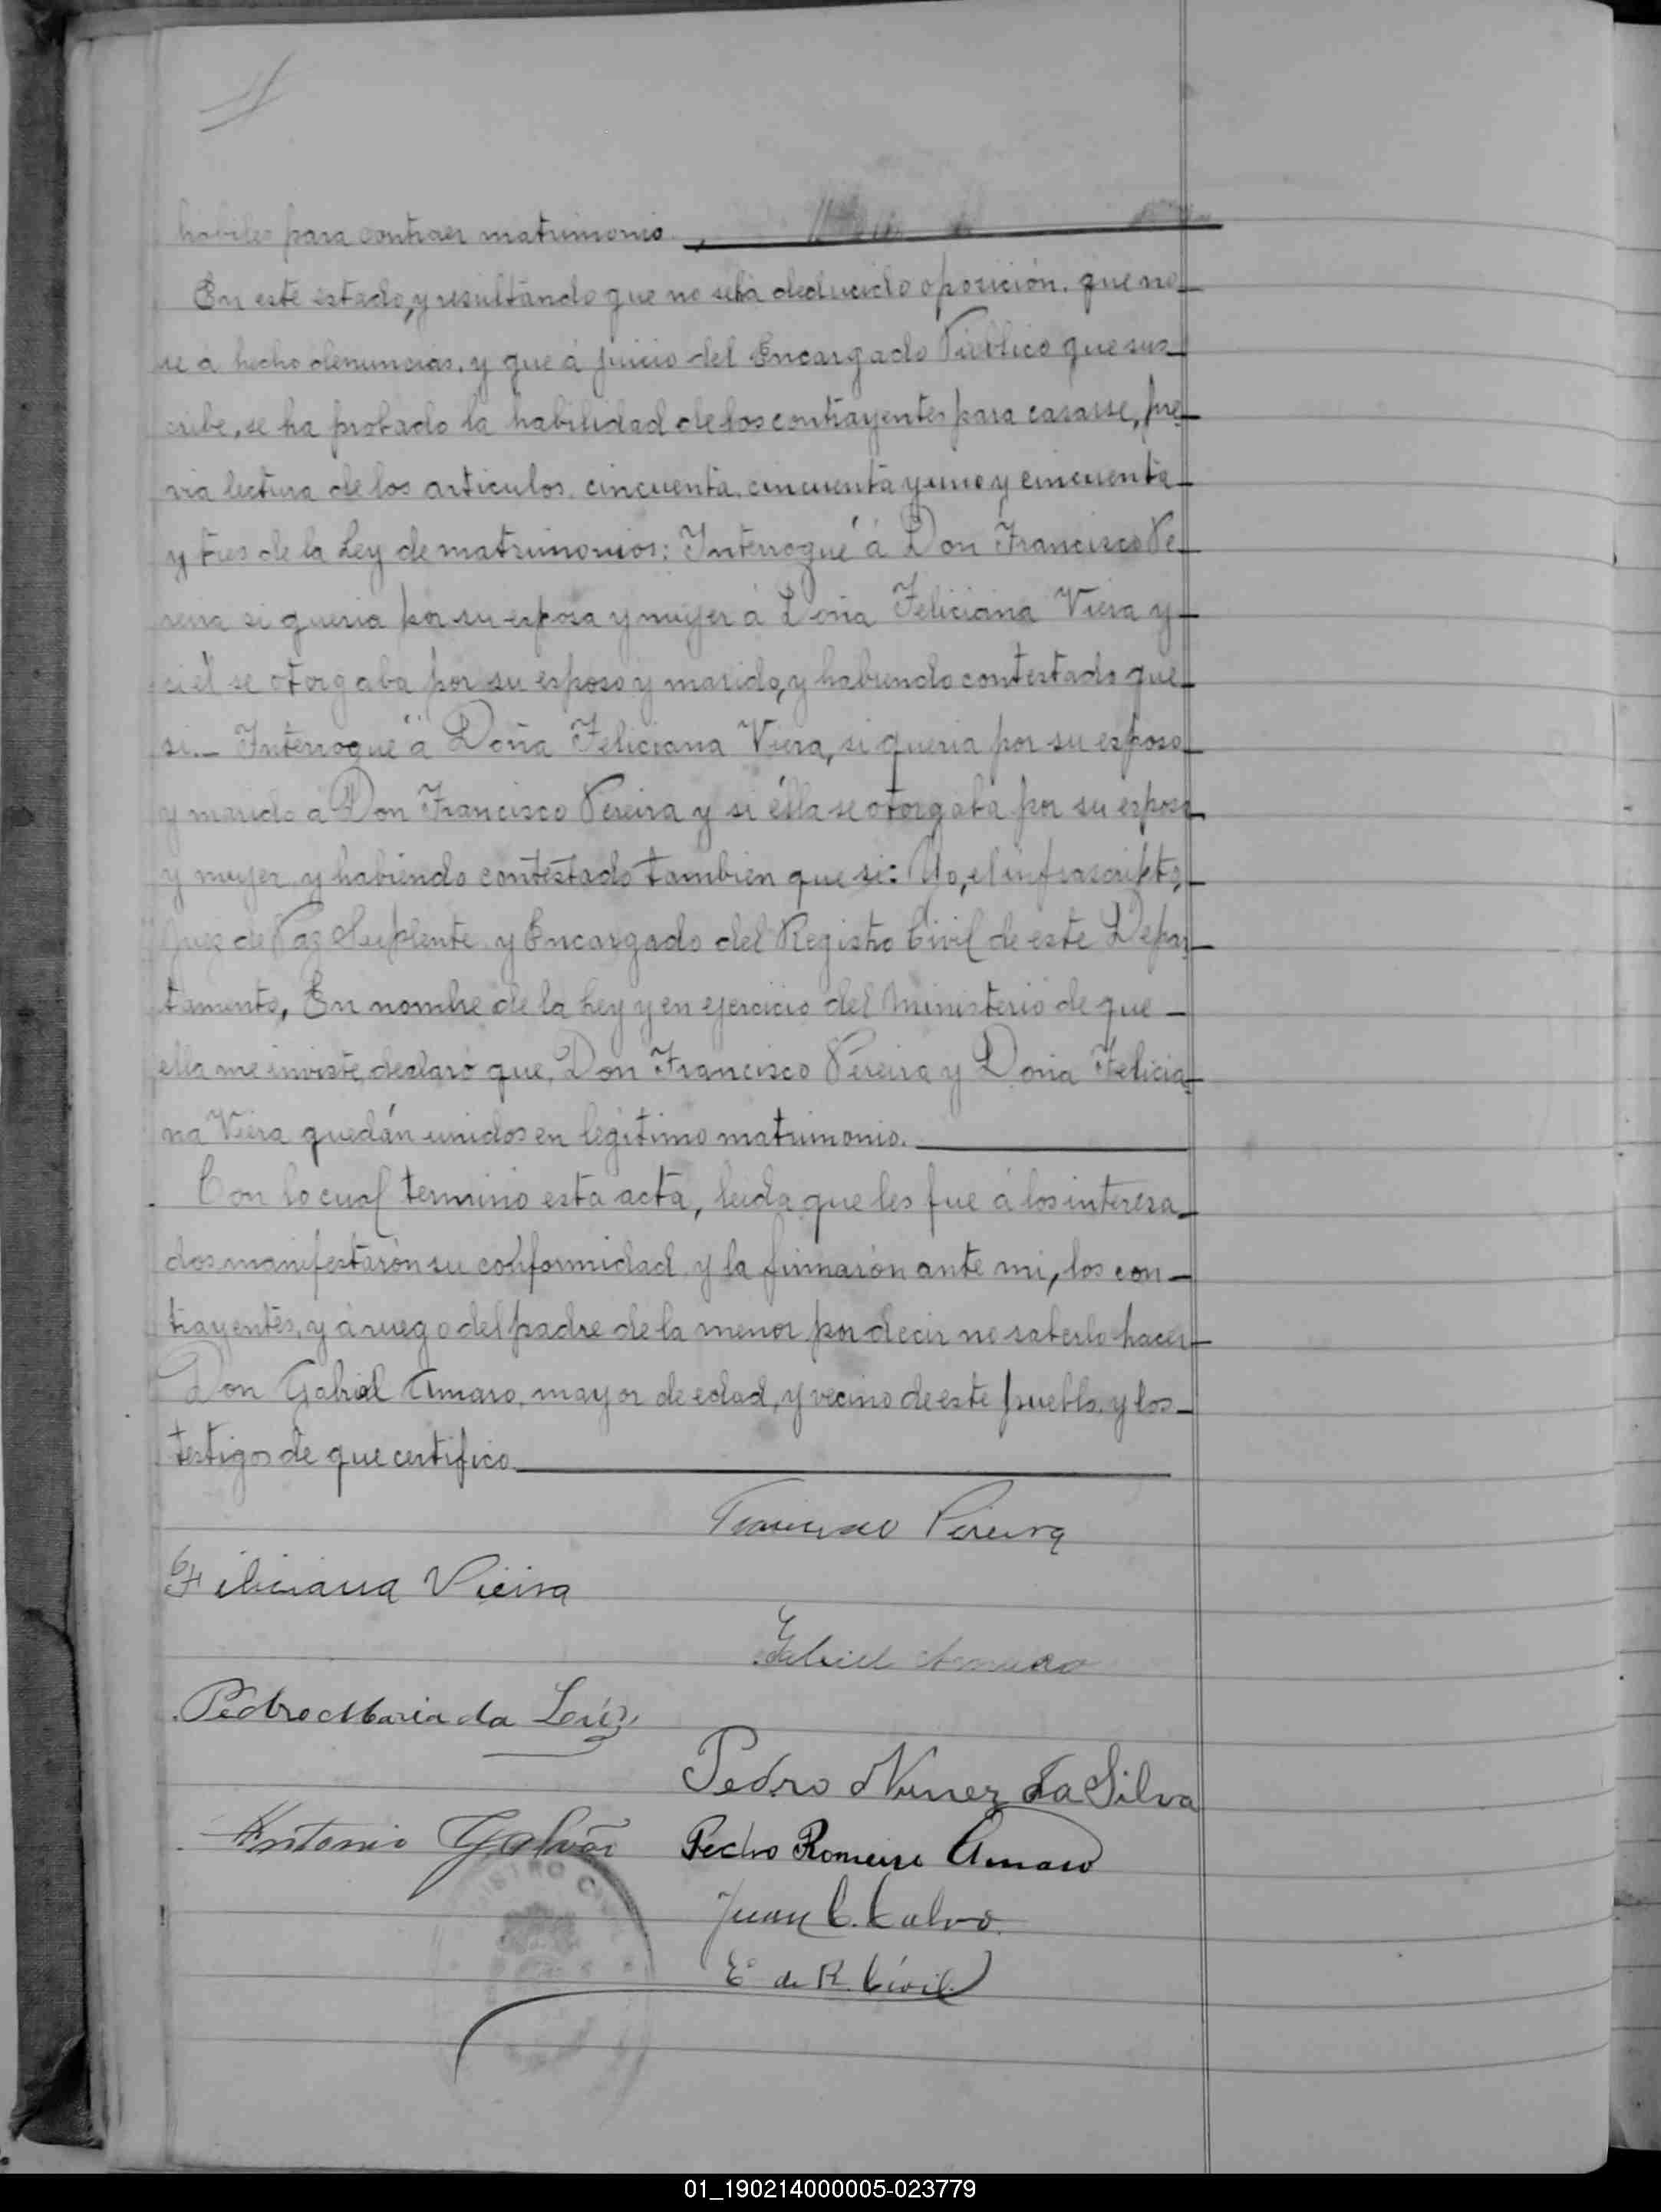 habiles para contraer matrimonio.
En este estado, y resultando que no se ha deducido oposición. que no
se á hecho denuncias, y que á juicio del Encargado Público que sus-
cribe, se ha probado la habilidad de los contrayentes para casarse, pre-
via lectura de los articulos, cincuenta, cincuenta y uno y cincuenta
y tres de la Ley de matrimonios: Interrogué á Don Francisco Pe-
reira si queria por su esposa y mujer á Doña Feliciana Viera y
si él se otorgaba por su esposo y marido, y habiendo contestado que
si.- Interrogué á Doña Feliciana Viera, si queria por su esposo
y marido a Don Francisco Pereira y si élla se otorgaba por su esposa
y mujer, y habiendo contestado tambien que si: Yo, el infrascripto,
Juez de Paz Suplente y Encargado del Registro Civil de este Depar-
tamento, En nombre de la Ley y en ejercicio del Ministerio de que
ella me inviste, declaró que, Don Francisco Pereira y Doña Felicia-
na Viera quedán unidos en legitimo matrimonio.
Con lo cual terminó esta acta, leida que les fue á los interesa-
dos manifestarón su conformidad y la firmarón ante mi, los con-
trayentes, y á ruego del padre de la menor por decir no saberlo hacer
Don Gabriel Amaro, mayor de edad, y vecino de este pueblo, y los
testigos de que certifico
Francisco Pereira
Feliciana Vieira
Gabriel Amaro
Pedro Maria da Luiz
Pedro Nunez da Silva
Antonio Galvão
Pedro Romeiro Amaro
REGISTRO CIVIL
Juan C. Calvo
E. de R. Civil
01_190214000005-023779